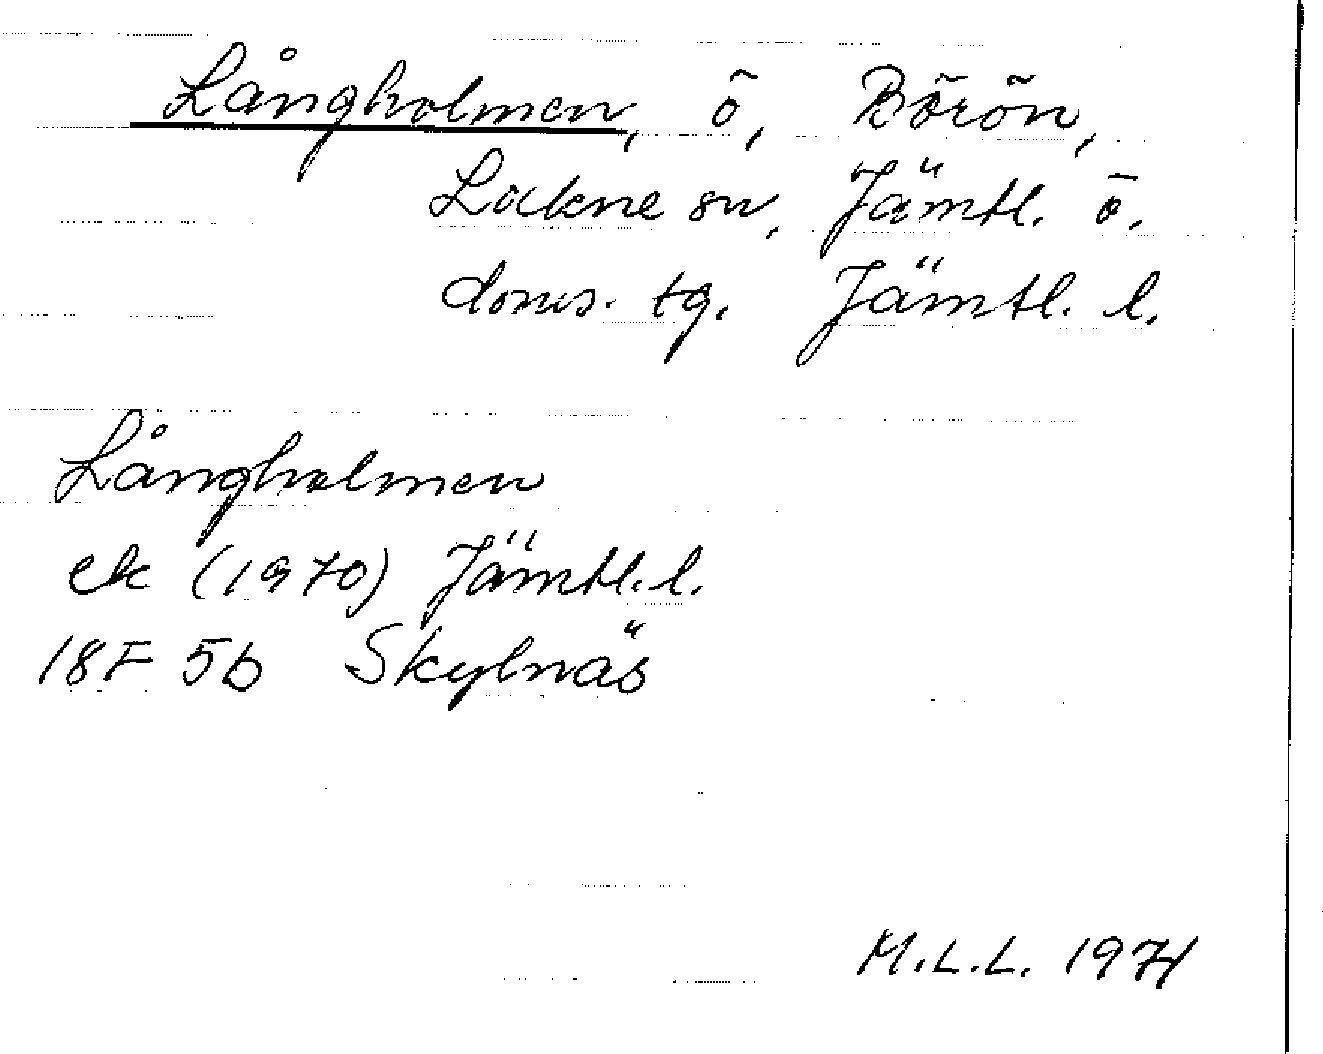 Långholmen, ö, Börön,
Lockne sn, Jämtl. ö.
doms. tg. Jämtl. l.
Långholmen
ek (1970) Jämtl. l.
18F 5b Skylnäs
M.L.L. 1971